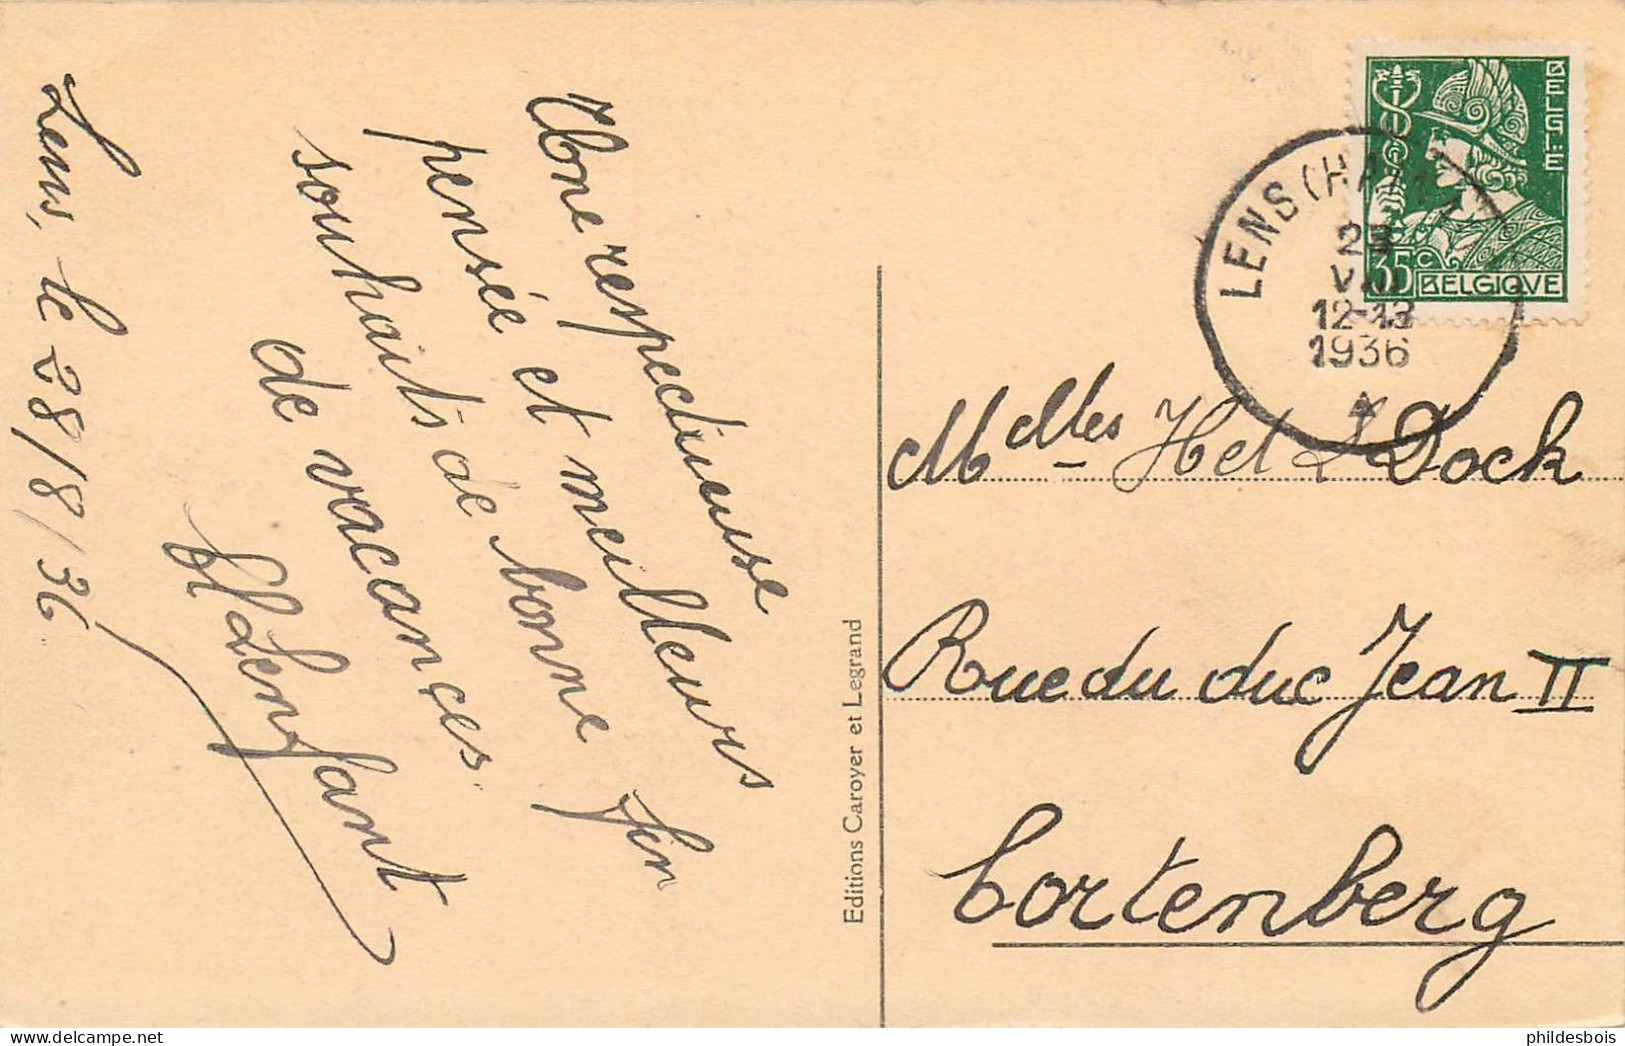 Lens, le 28/8/36
Une respectueuse
pensée et meilleurs
souhaits de bonne fin
de vacances.
Lenfant
Editions Caroyer et Legrand
BELGIE
35 C
BELGIQUE
LENS (HAIN
VIII
12-13
1936
Mdelles Het & L Dock
Rue du duc Jean II
Cortenberg
phildesbois